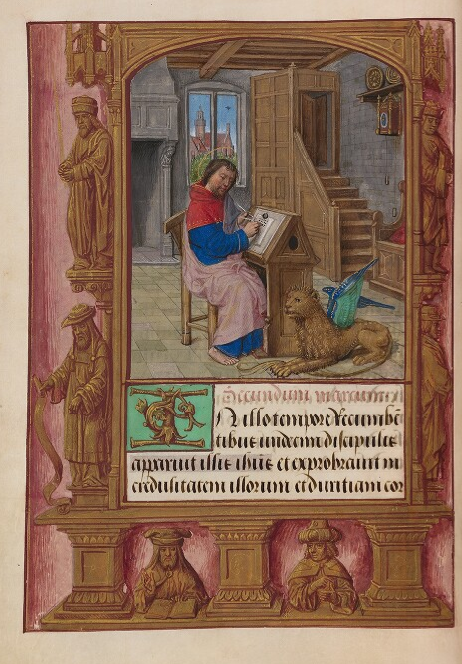 Secundum marcum
IN illo tempore Recumbē
tibus undecim discipulis
apparuit illis ihūs et exprobrauit in
credulitatem illorum et duritiam cor